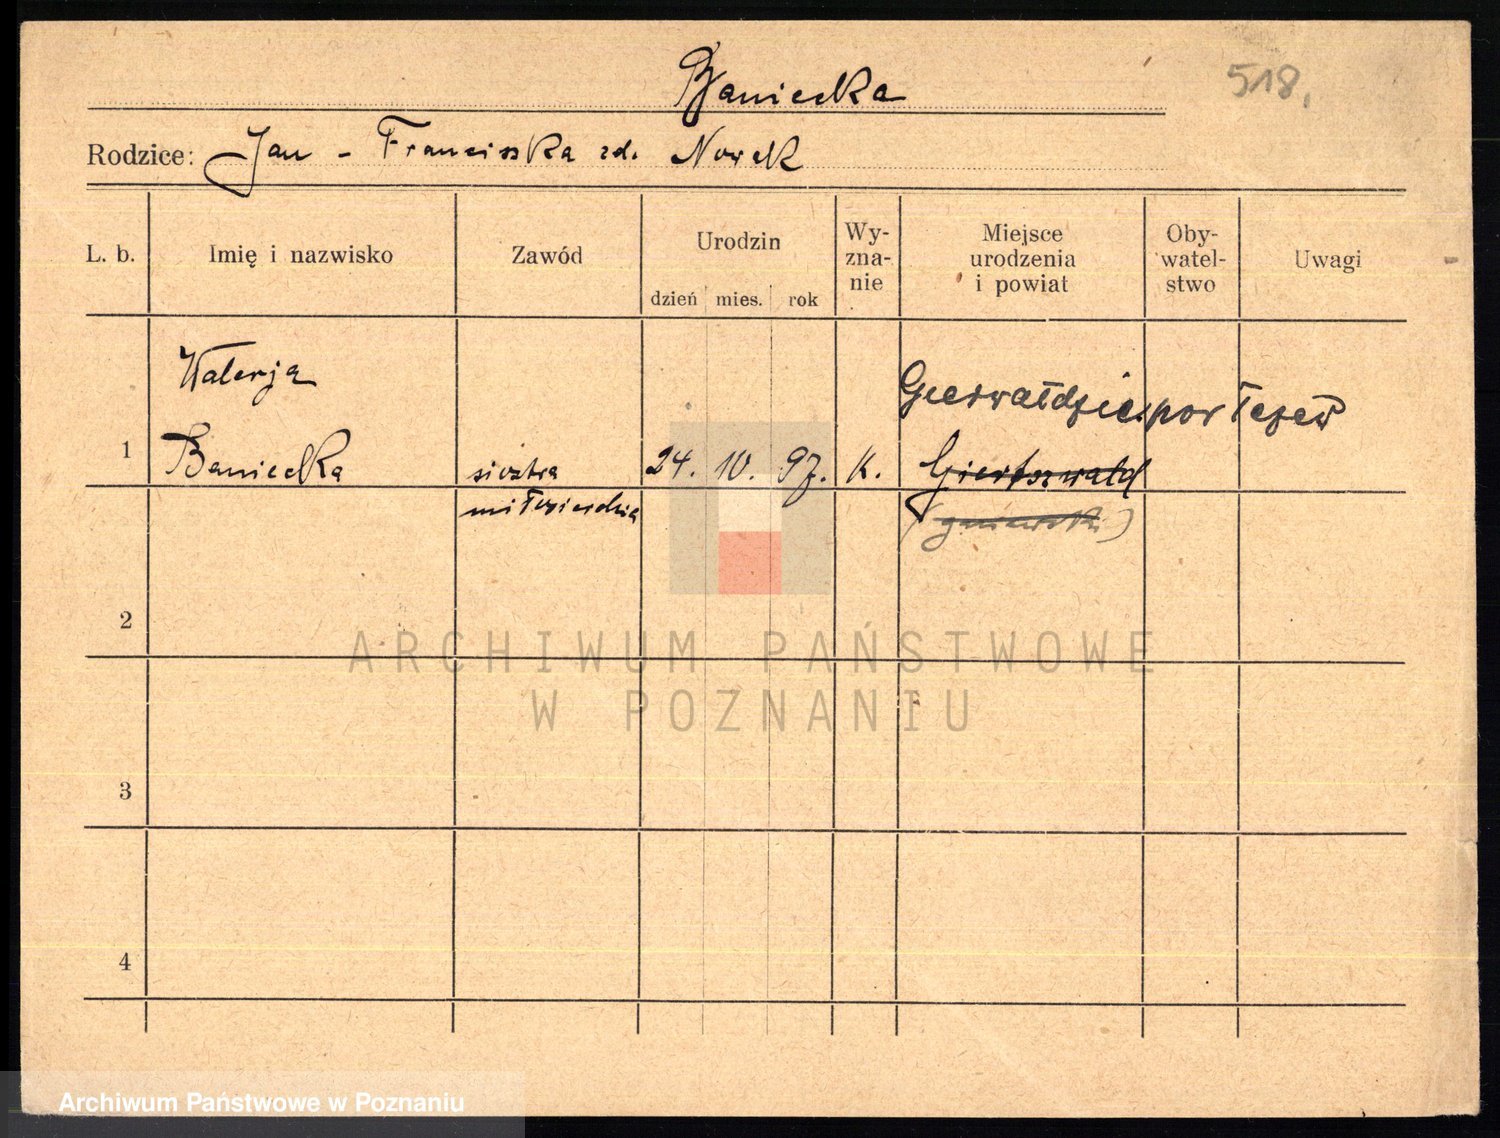 Baniecka
518.
Rodzice: Jan - Franciszka zd. Nowak
L. b. Imię i nazwisko Zawód Urodzin dzień mies. rok Wy-zna-nie Miejsce urodzenia i powiat Oby-watel-stwo Uwagi
Walerja
Gierwałdzie pow Tczew
1 Baniecka siostra 24. 10. 97. K.
miłosierdzia
2
3
4
ARCHIWUM PAŃSTWOWE
W POZNANIU
Archiwum Państwowe w Poznaniu